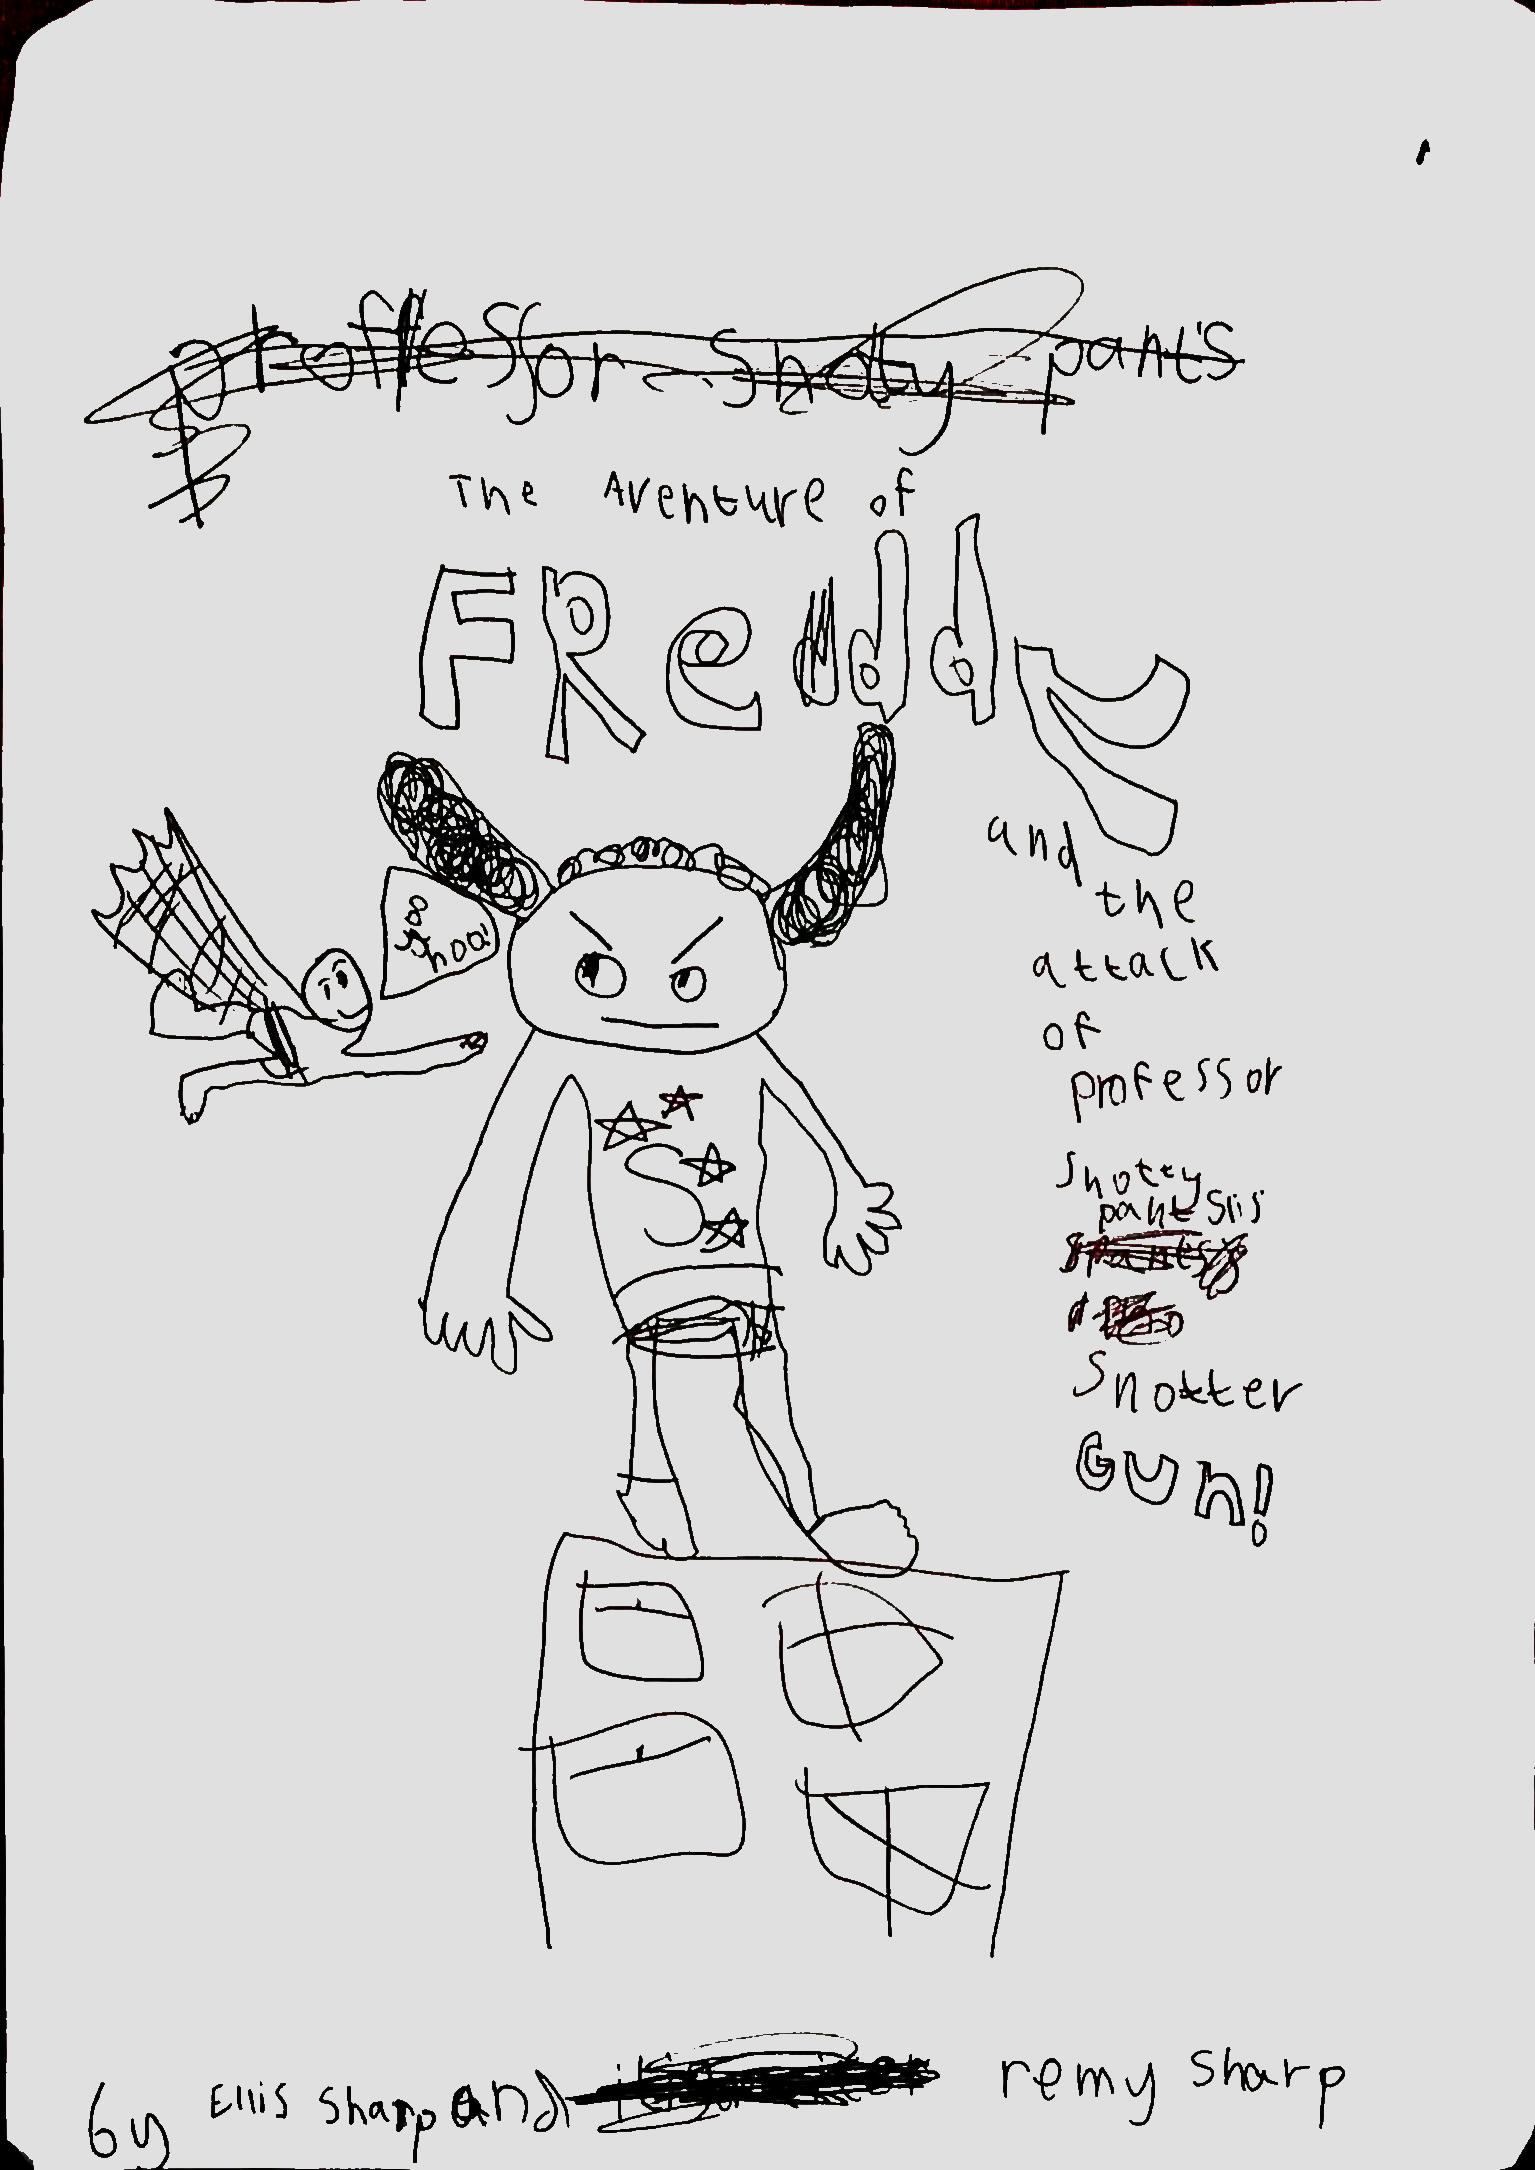 proffessor snoty pant's
The Aventure of
FReddy
and
the
attack
of
professor
snotty
pantslis
snotter
Gun!
yoo
hoo!
S
by Ellis Sharp and remy sharp